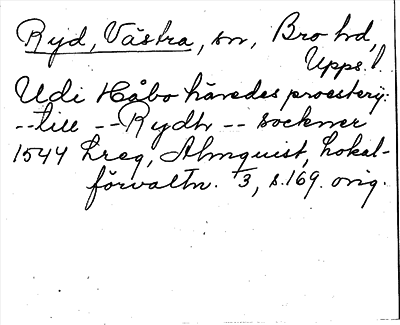 Ryd, Västra, sn, Bro hd,
Upps. l.
Udi Håbo häredes proesterij:
-- till -- Rydh -- sockner
1544 Lreg, Almquist, Lokal-
förvaltn. 1/3, s.169. orig.